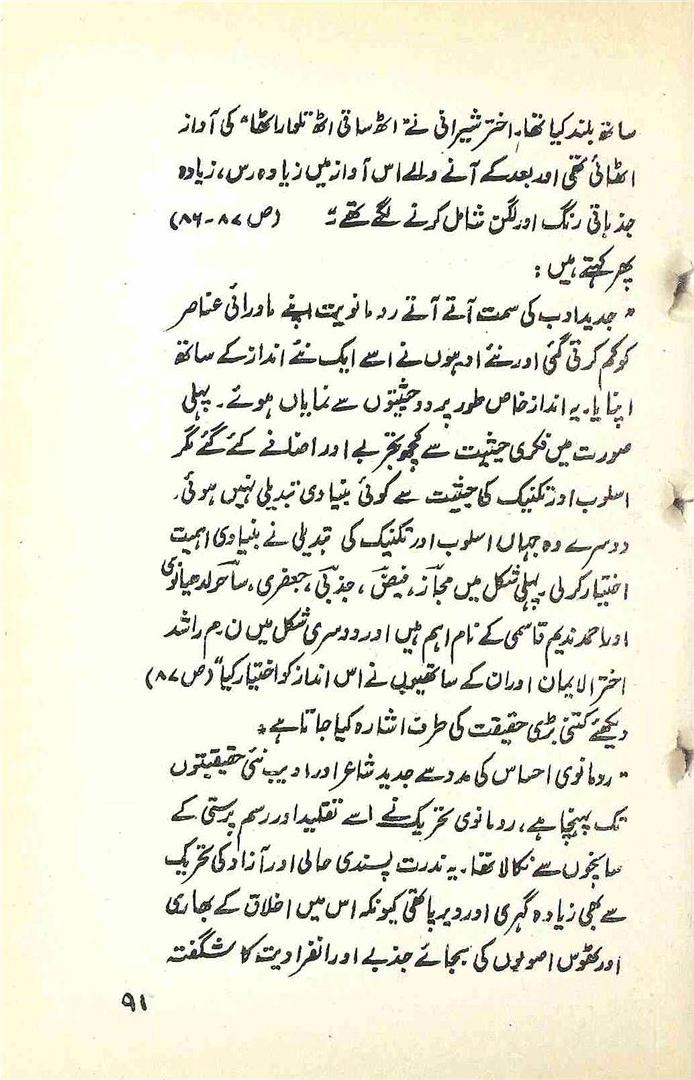 ساتھ بلند کیا تھا۔ اختر شیرانی نے "اٹھ ساقی اٹھ تلوار اٹھا" کی آواز
اٹھائی تھی اور بعد کے آنے والے اس آواز میں زیادہ رس، زیادہ
جذباتی رنگ اور لگن شامل کرنے لگے تھے" (ص ۸۷-۸۶)
پھر کہتے ہیں :
"جدید ادب کی سمت آتے آتے رومانویت اپنے ماورائی عناصر
کو کم کرتی گئی اور نئے ادیبوں نے اسے ایک نئے انداز کے ساتھ
اپنایا۔ یہ انداز خاص طور پر دو حیثیتوں سے نمایاں ہوئے۔ پہلی
صورت میں فکری حیثیت سے کچھ تجربے اور اضافے کئے گئے مگر
اسلوب اور تکنیک کی حیثیت سے کوئی بنیادی تبدیلی نہیں ہوئی۔
دوسرے وہ جہاں اسلوب اور تکنیک کی تبدیلی نے بنیادی اہمیت
اختیار کر لی۔ پہلی شکل میں مجاز، فیض، جذبی، جعفری، ساحر لدھیانوی
اور احمد ندیم قاسمی کے نام اہم ہیں اور دوسری شکل میں ن۔م راشد
اختر الایمان اور ان کے ساتھیوں نے اس انداز کو اختیار کیا" (ص ۸۷)
دیکھئے کتنی بڑی حقیقت کی طرف اشارہ کیا جاتا ہے۔
"رومانوی احساس کی مدد سے جدید شاعر اور ادیب نئی حقیقتوں
تک پہنچا ہے، رومانوی تحریک نے اسے تقلید اور رسم پرستی کے
سانچوں سے نکالا تھا۔ یہ ندرت پسندی حالی اور آزاد کی تحریک
سے بھی زیادہ گہری اور دیرپا تھی کیونکہ اس میں اخلاق کے بھاری
اور ٹھوس اصولوں کی بجائے جذبے اور انفرادیت کا شگفتہ
۹۱